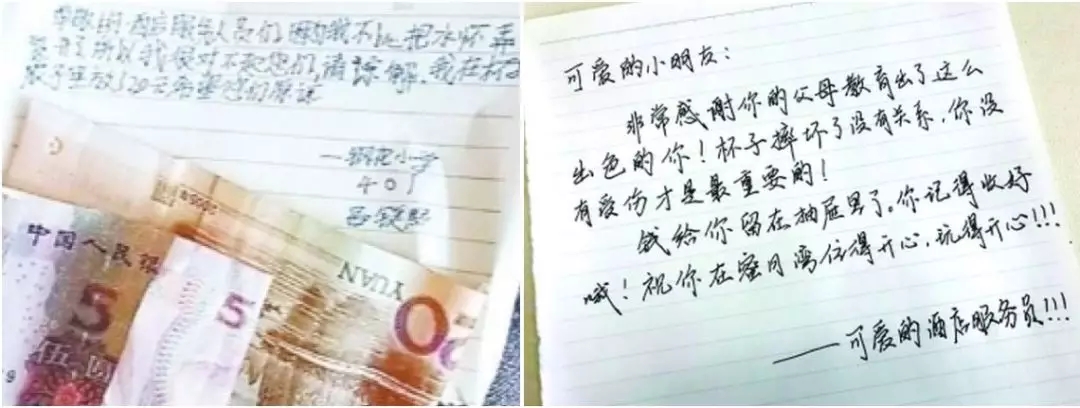 酒店服务人员们 因为我不小心把水杯弄
所以我很对不起您们,请谅解.我在杯
子里放了20元希望您们原谅
——钢花小学
401
中国人民银
5
伍
5
YUAN
可爱的小朋友:
非常感谢你的父母教育出了这么
出色的你!杯子摔坏了没有关系,你没
有受伤才是最重要的!
钱给你留在抽屉里了。你记得收好
哦!祝你在蜜月湾住得开心,玩得开心!!!
——可爱的酒店服务员!!!